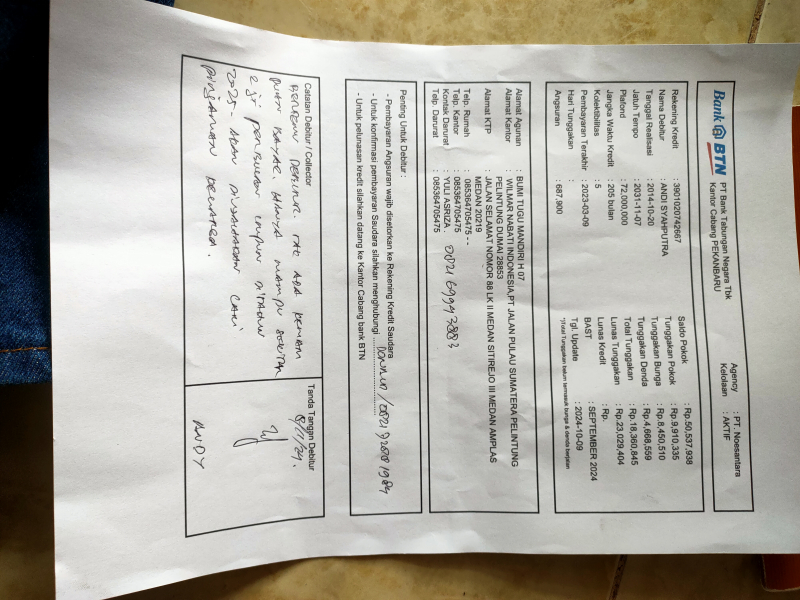 Bank BTN
PT Bank Tabungan Negara Tbk
Kantor Cabang PEKANBARU
Agency : PT. Noesantara
Kelolaan : AKTIF
Rekening Kredit : 3901020742667
Nama Debitur : ANDI SYAHPUTRA
Tanggal Realisasi : 2014-10-20
Jatuh Tempo : 2031-11-07
Plafond : 72,000,000
Jangka Waktu Kredit : 205 bulan
Kolektibilitas : 5
Pembayaran Terakhir : 2023-03-09
Hari Tunggakan :
Angsuran : 687,900
Saldo Pokok : Rp.50,537,938
Tunggakan Pokok : Rp.9,910,335
Tunggakan Bunga : Rp.8,450,510
Tunggakan Denda : Rp.4,668,559
Total Tunggakan : Rp.18,360,845
Lunas Tunggakan : Rp.23,029,404
Lunas Kredit : Rp.
BAST : SEPTEMBER 2024
Tgl. Update : 2024-10-09
*)Total Tunggakan belum termasuk bunga & denda berjalan
Alamat Agunan : BUMI TUGU MANDIRI H 07
Alamat Kantor : WILMAR NABATI INDONESIA,PT JALAN PULAU SUMATERA PELINTUNG
PELINTUNG DUMAI 28853
Alamat KTP : JALAN SELAMAT NOMOR 88 LK II MEDAN SITIREJO III MEDAN AMPLAS
MEDAN 20219
Telp. Rumah : 085364705475 - -
Telp. Kantor : 085364705475
Kontak Darurat : YULI ASRIZA
Telp. Darurat : 085364705475
Penting Untuk Debitur :
- Pembayaran Angsuran wajib disetorkan ke Rekening Kredit Saudara
- Untuk konfirmasi pembayaran Saudara silahkan menghubungi
- Untuk pelunasan kredit silahkan datang ke Kantor Cabang bank BTN
Catatan Debitur / Collector
BERTEMU DEBITUR. TAK ADA
BAYAR. HANYA MAMPU
DITAHUN
2025- AKAN DIUSAHAKAN CARI
PINJAMAN KELUARGA.
Tanda Tangan Debitur
8/11/24.
ANDY